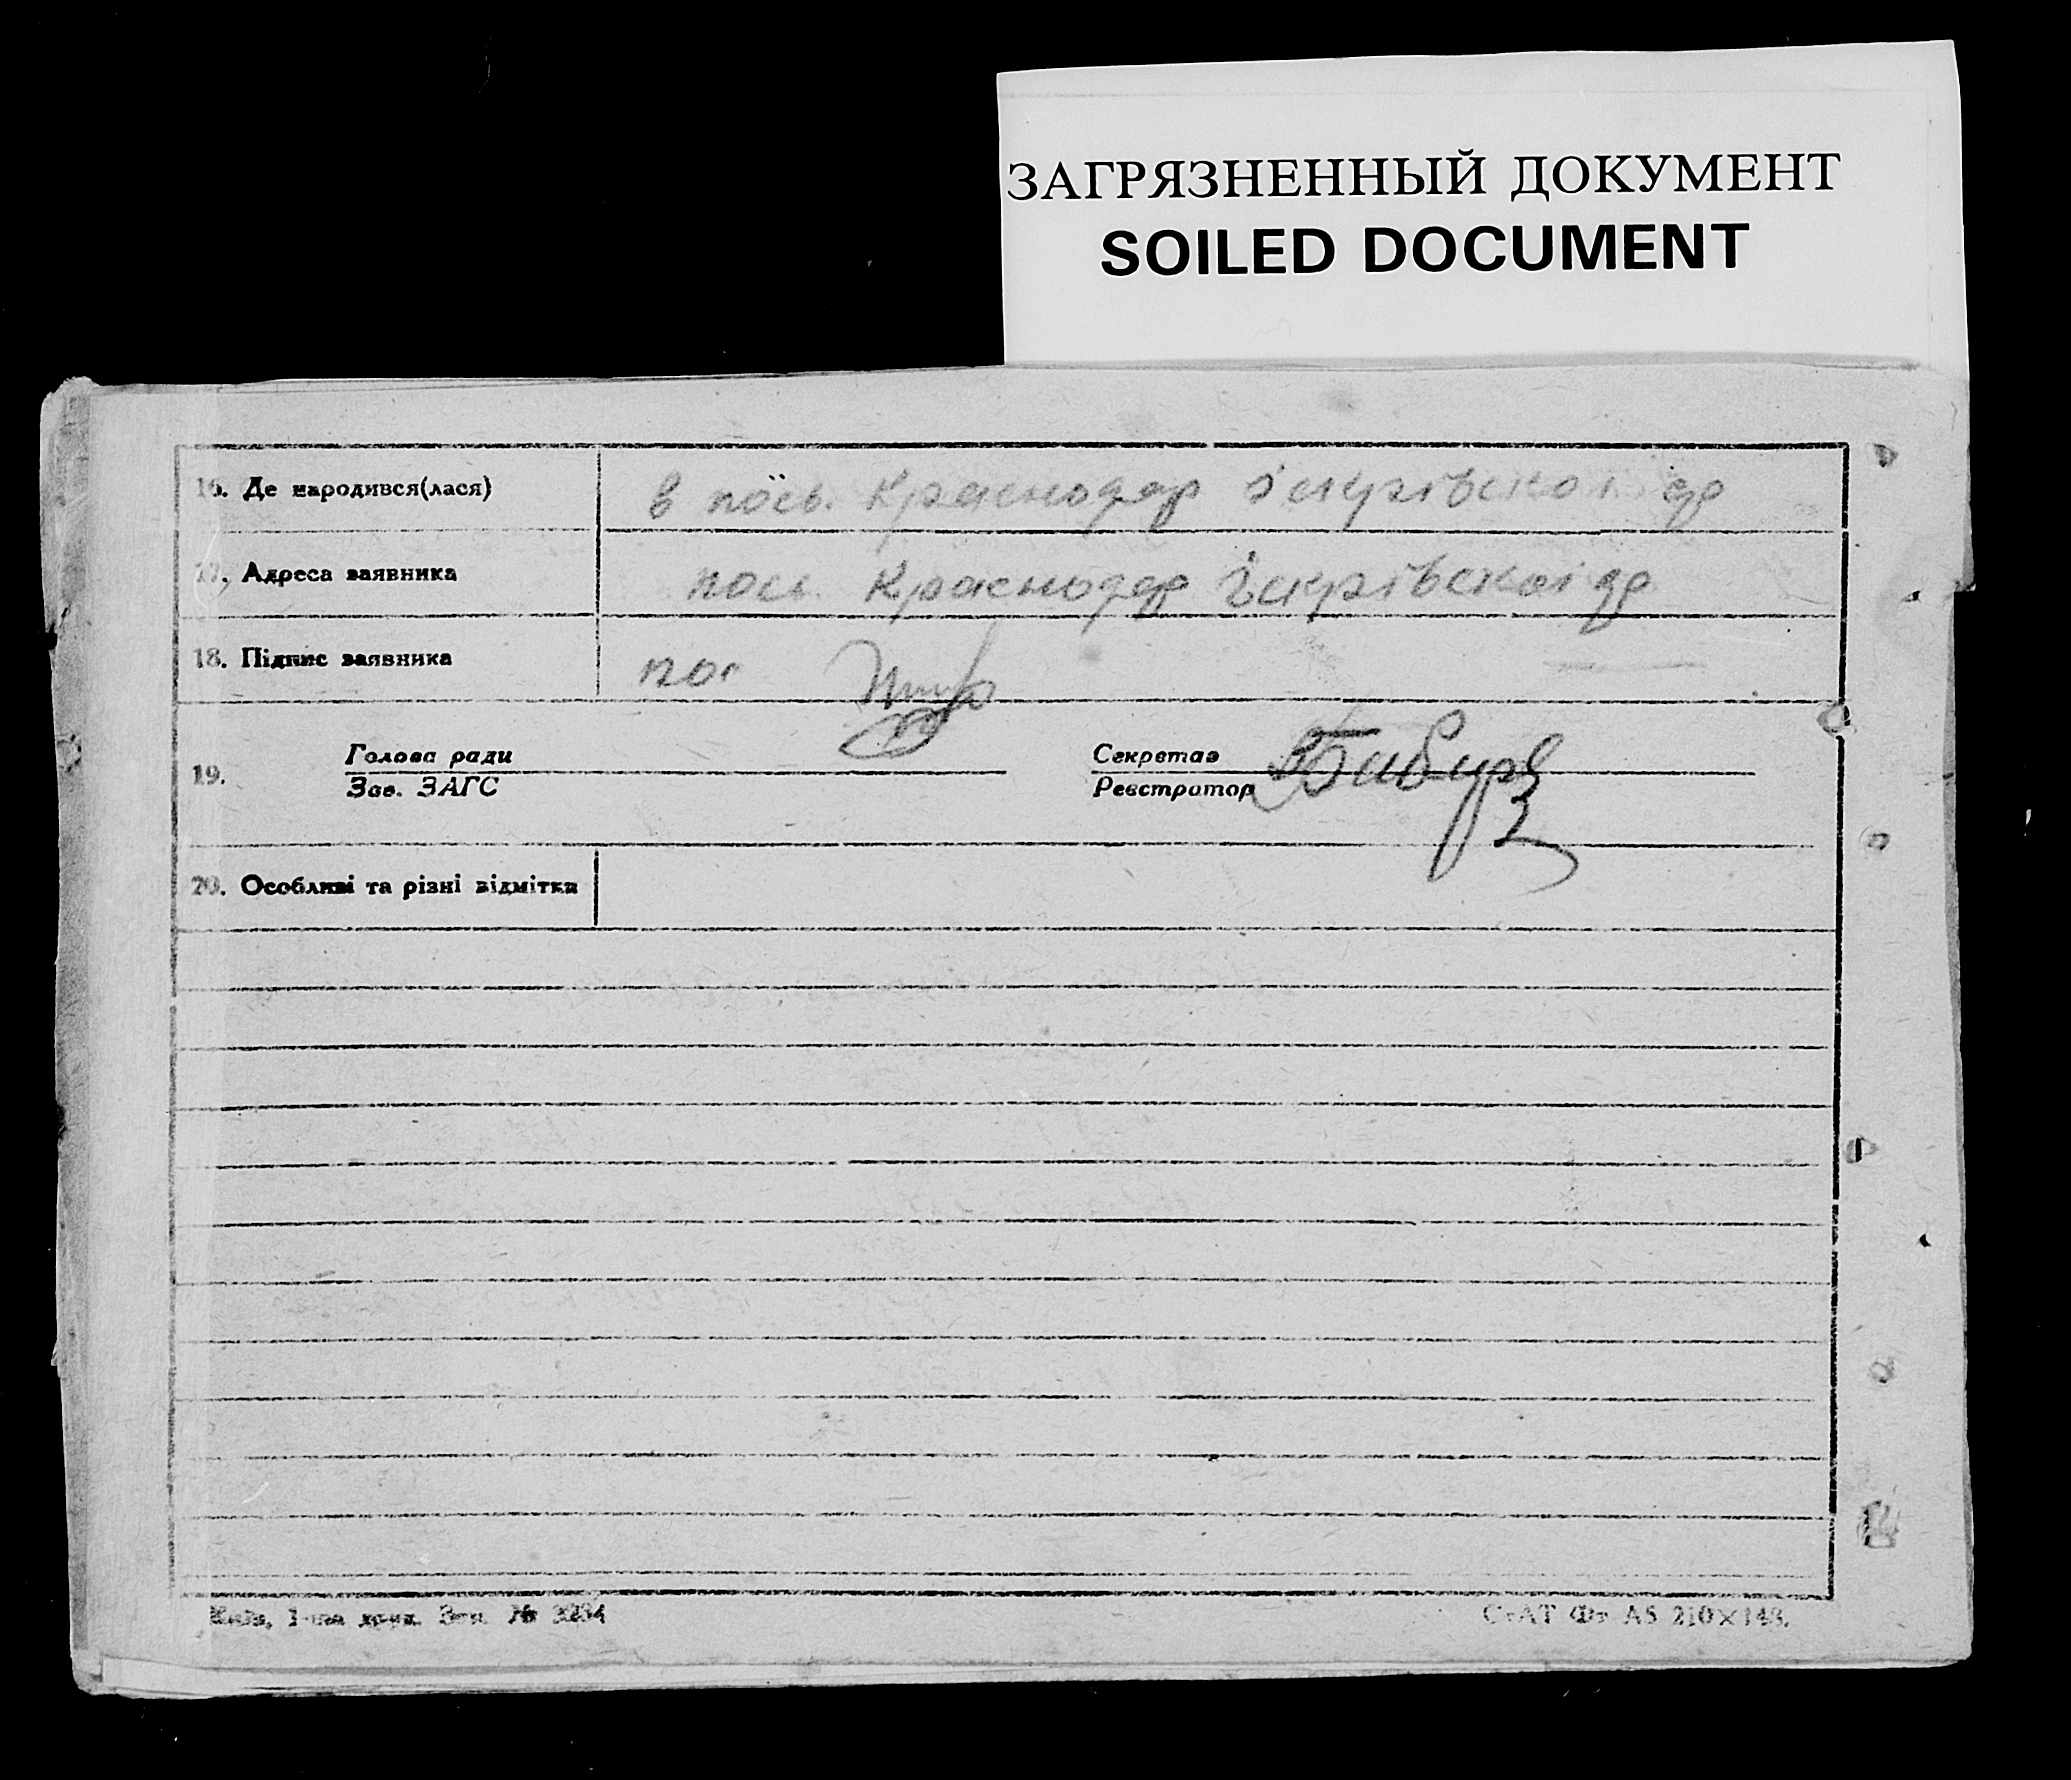 ЗАГРЯЗНЕННЫЙ ДОКУМЕНТ
SOILED DOCUMENT
16. Де народився(лася) в пось. Краснодар іскрівскоі др
17. Адреса заявника пось. Краснодар іскрівскоі др
18. Підпис заявника
19. Голова ради
Зав. ЗАГС
Секретар
Реєстратор
20. Особливі та різні відмітки
Київ, 1-ша друк. Зам. №
СтАТ Фт А5 210×148.